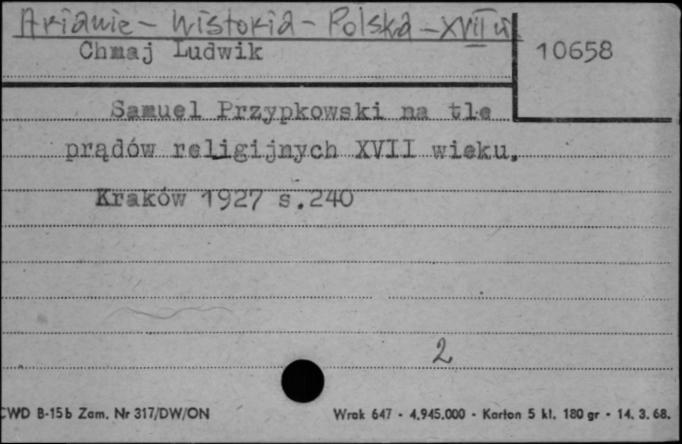 Arianie - historia - Polska - XVII w.
Chmaj Ludwik
10658
Samuel Przypkowski na tle
prądów religijnych XVII wieku.
Kraków 1927 s.240
2
CWD B-15b Zam. Nr 317/DW/ON
Wrak 647 - 4.945.000 - Karton 5 kl. 180 gr - 14. 3. 68.